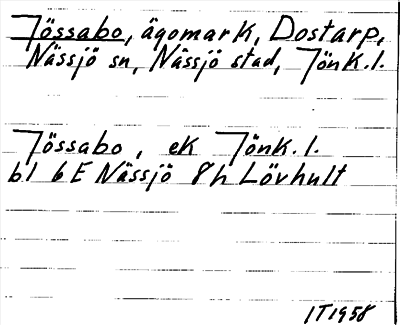 Jössabo, ägomark, Dostarp,
Nässjö sn, Nässjö stad, Jönk.l.
Jössabo, ek Jönk.l.
bl 6E Nässjö 8h Lövhult
IT1958